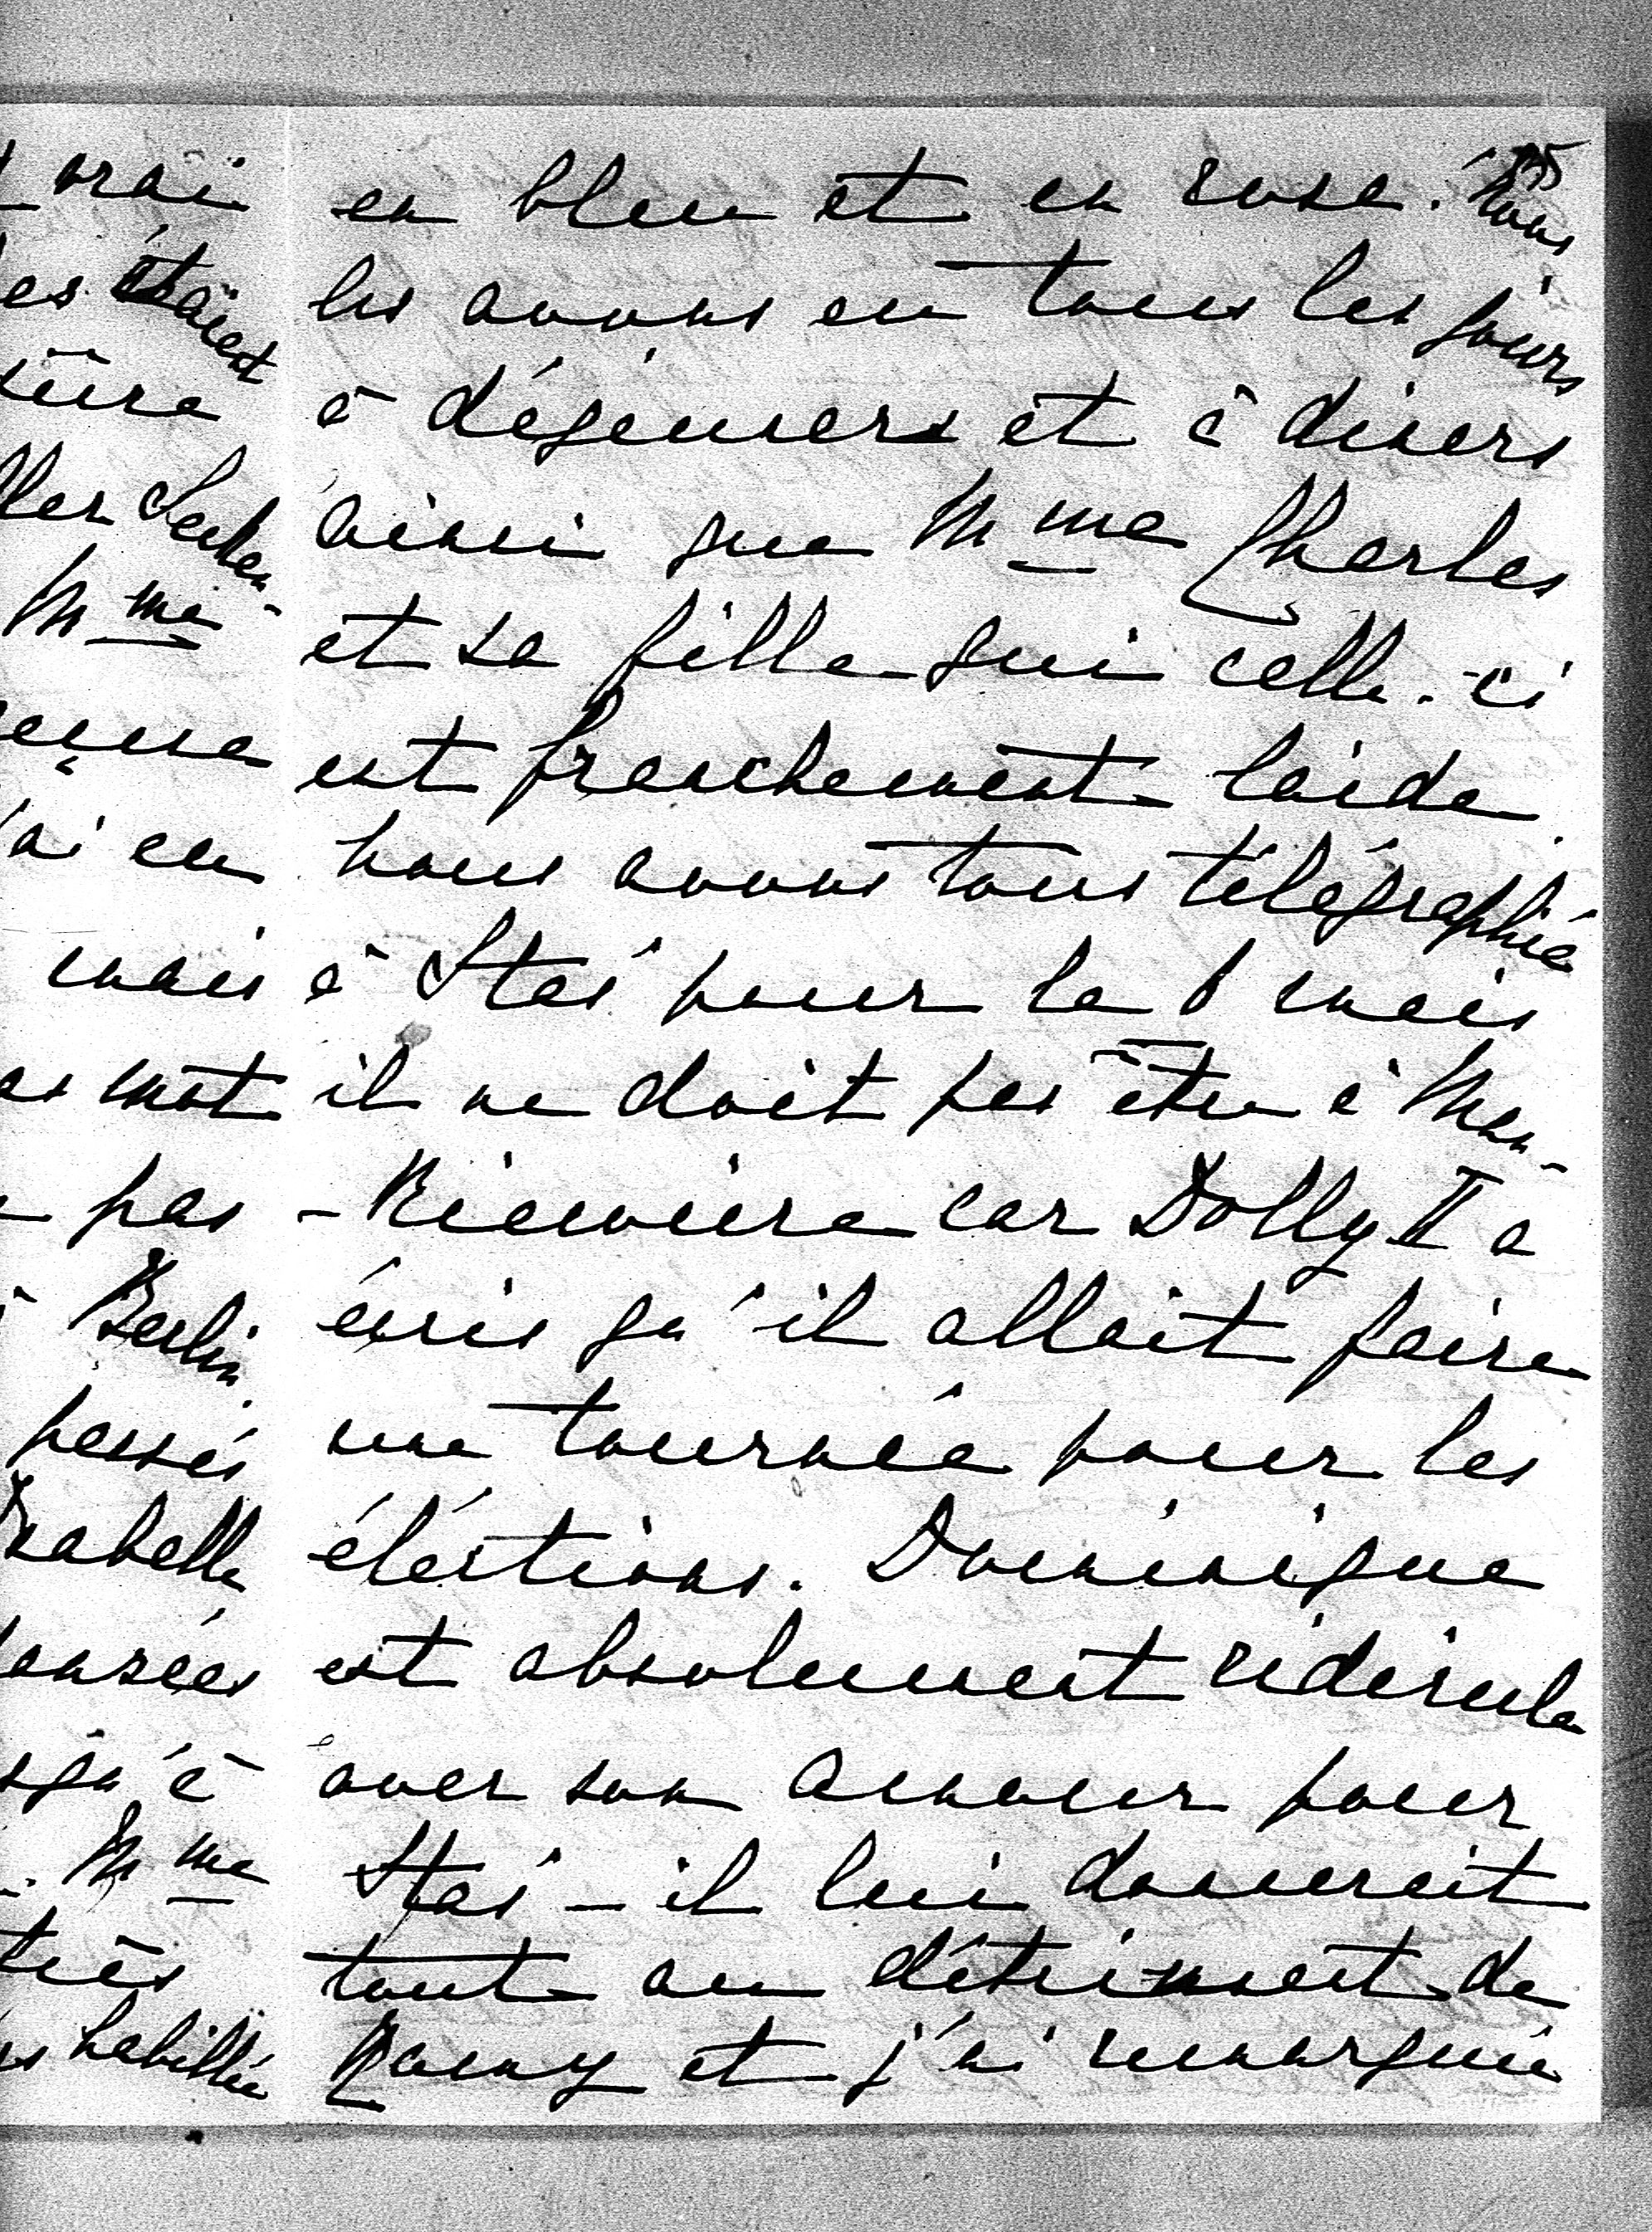 vrai
es étaient
Mme
ai eu
mais
mot
pas
à Berlin.
passés
Isabelle
squ'à
Mme
très
habillée
en bleu et en rose. Nous
les avons eu tous les jours
à déjeuners et à diners
ainsi que Mme Charles
et sa fille qui celle-ci
est franchement laide.
Nous avons tous télégraphié
à Stas pour le 8 mais
il ne doit pas être à Man-
-Rieuvière car Dolly II a
écris qu'il allait faire
une tournée pour les
éléctions. Dominique
est absolument ridicule
avec son amour pour
Stas - il lui donnerait
tout au détriment de
et j'ai remarquée